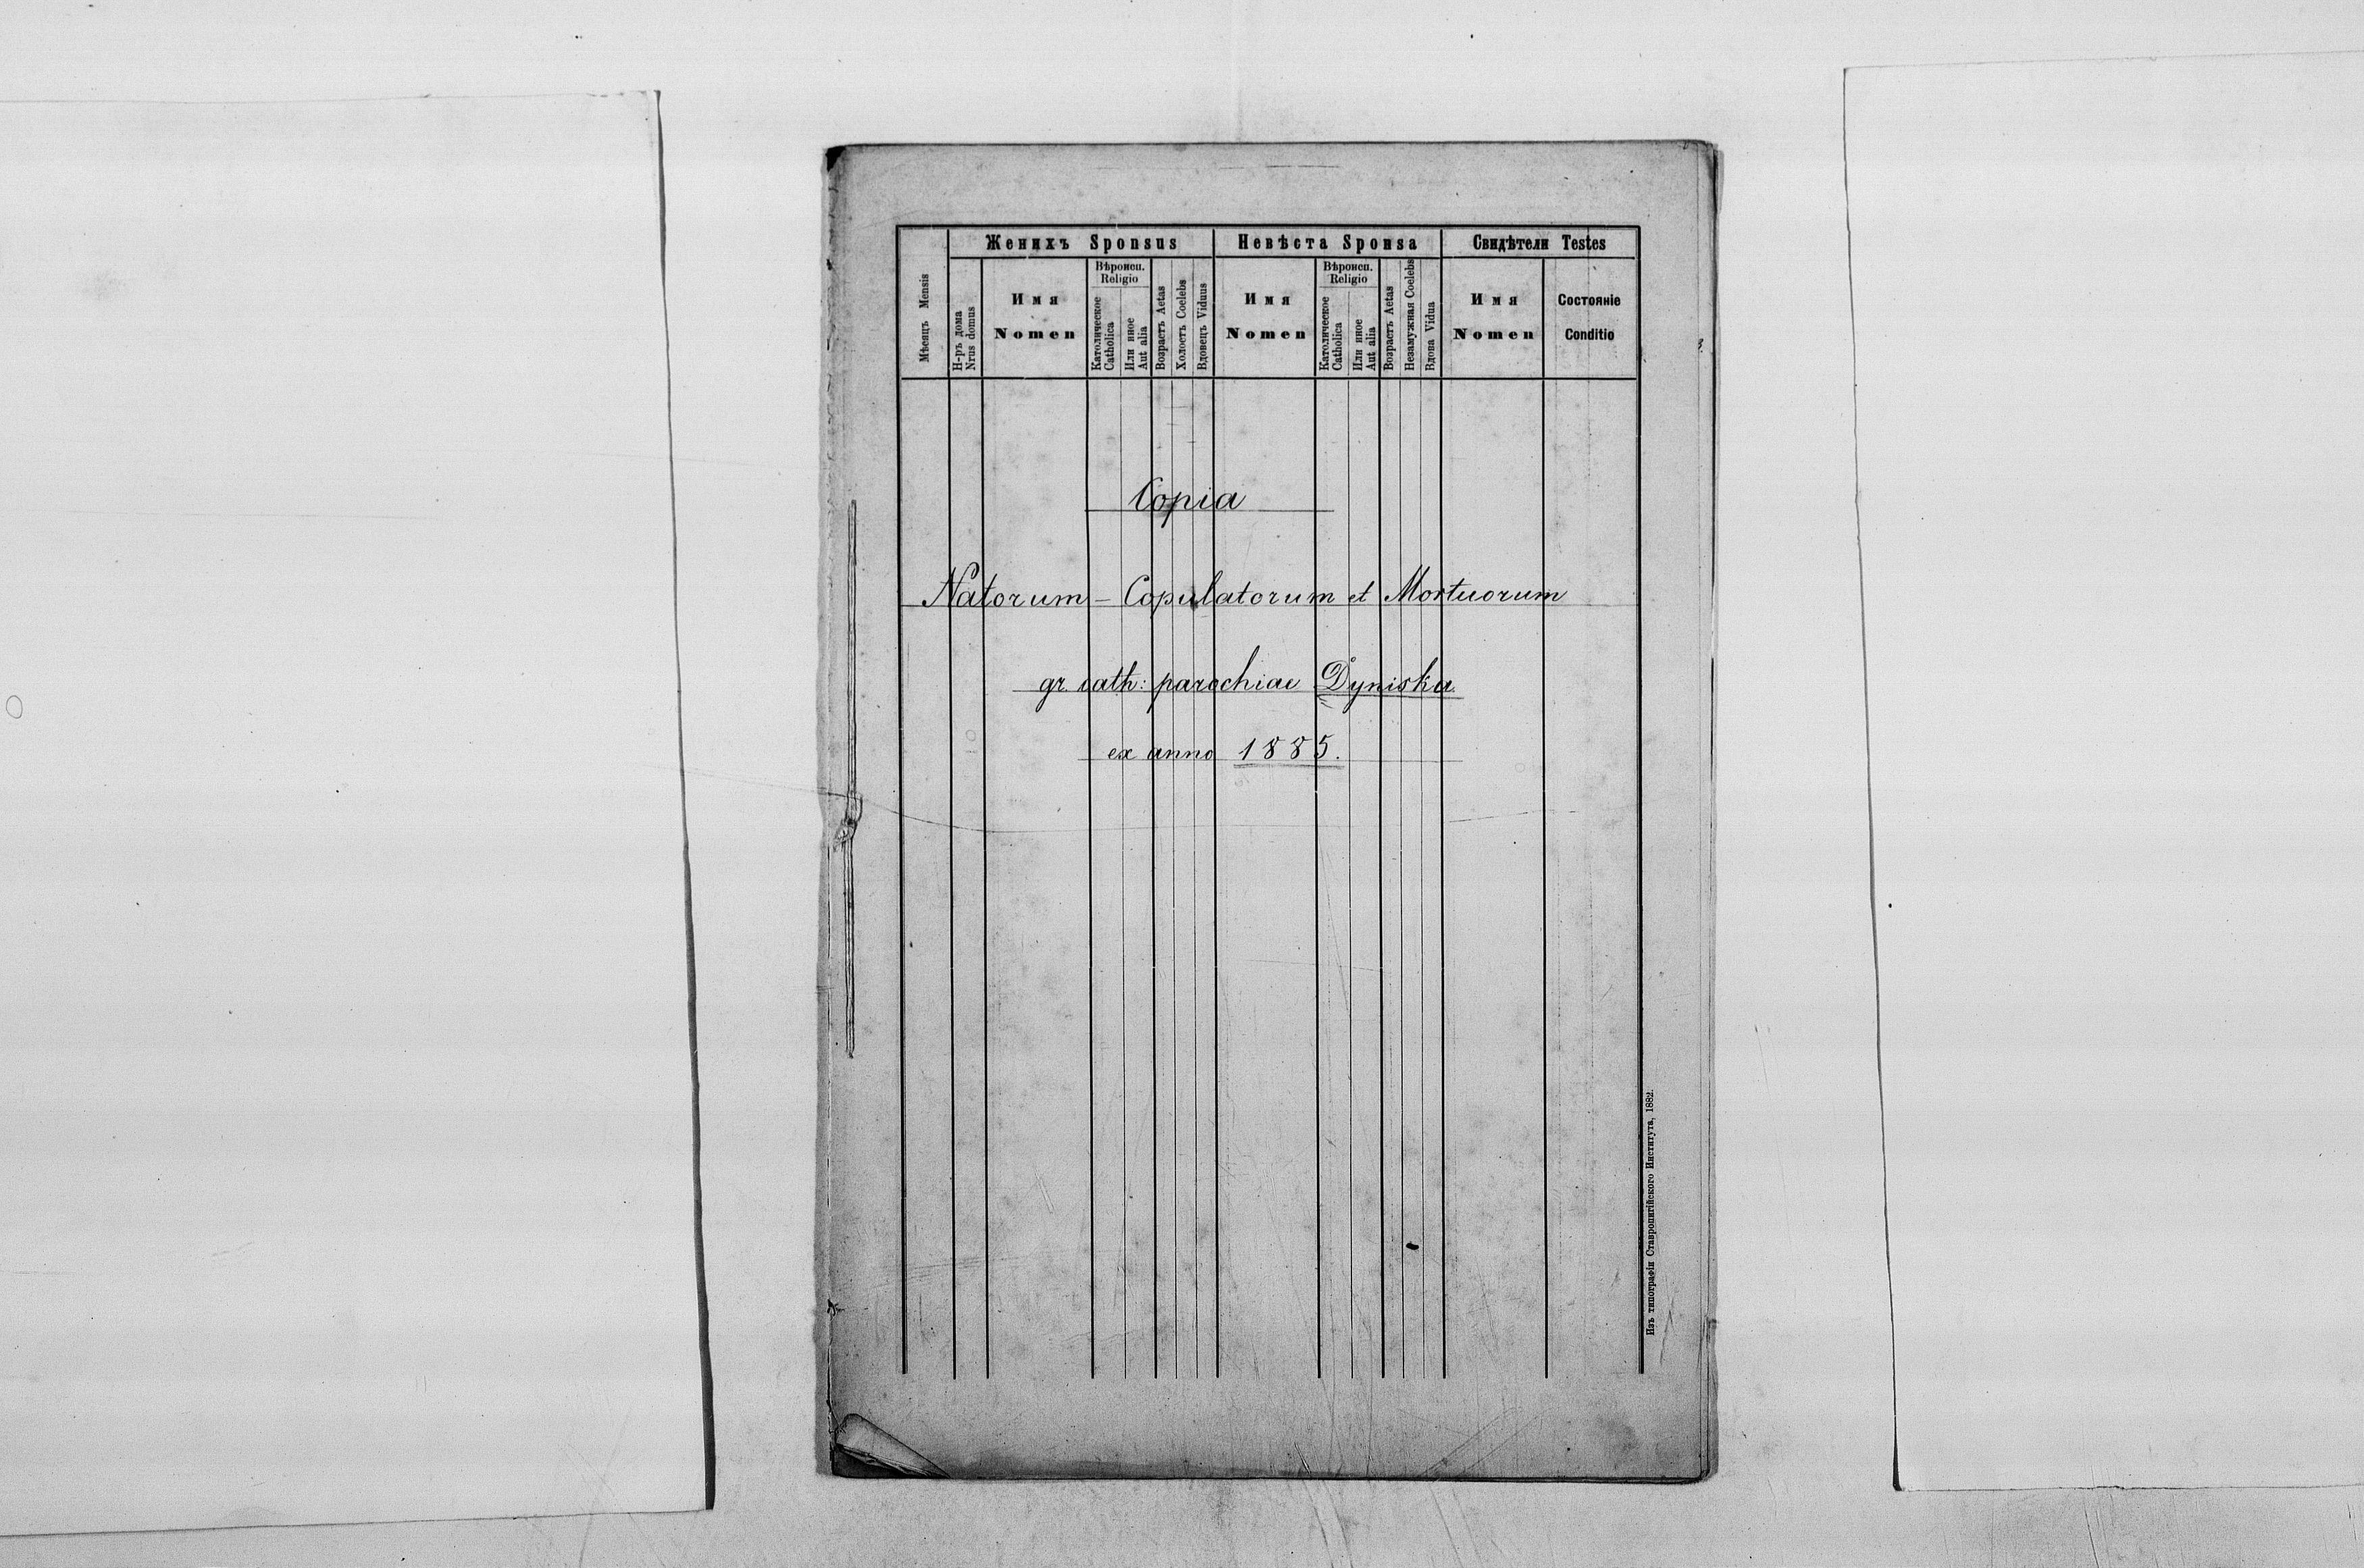 Мѣсяцъ Mensis
Женихъ Sponsus
Невѣста Sponsa
Свидѣтели Testes
Н-ръ дома
Nrus domus
Имя
Nomen
Вѣроисп.
Religio
Католическое
Catholica
Или иное
Aut alia
Возрастъ Aetas
Холостъ Coelebs
Вдовецъ Viduus
Имя
Nomen
Вѣроисп.
Religio
Католическое
Catholica
Или иное
Aut alia
Возрастъ Aetas
Незамужная Coelebs
Вдова Vidua
Имя
Nomen
Состояніе
Conditio
Copia
Natorum – Copulatorum et Mortuorum
gr. cath: parochiae Dyniska
ex anno 1885.
Изъ типографіи Ставропигійского Института, 1882.